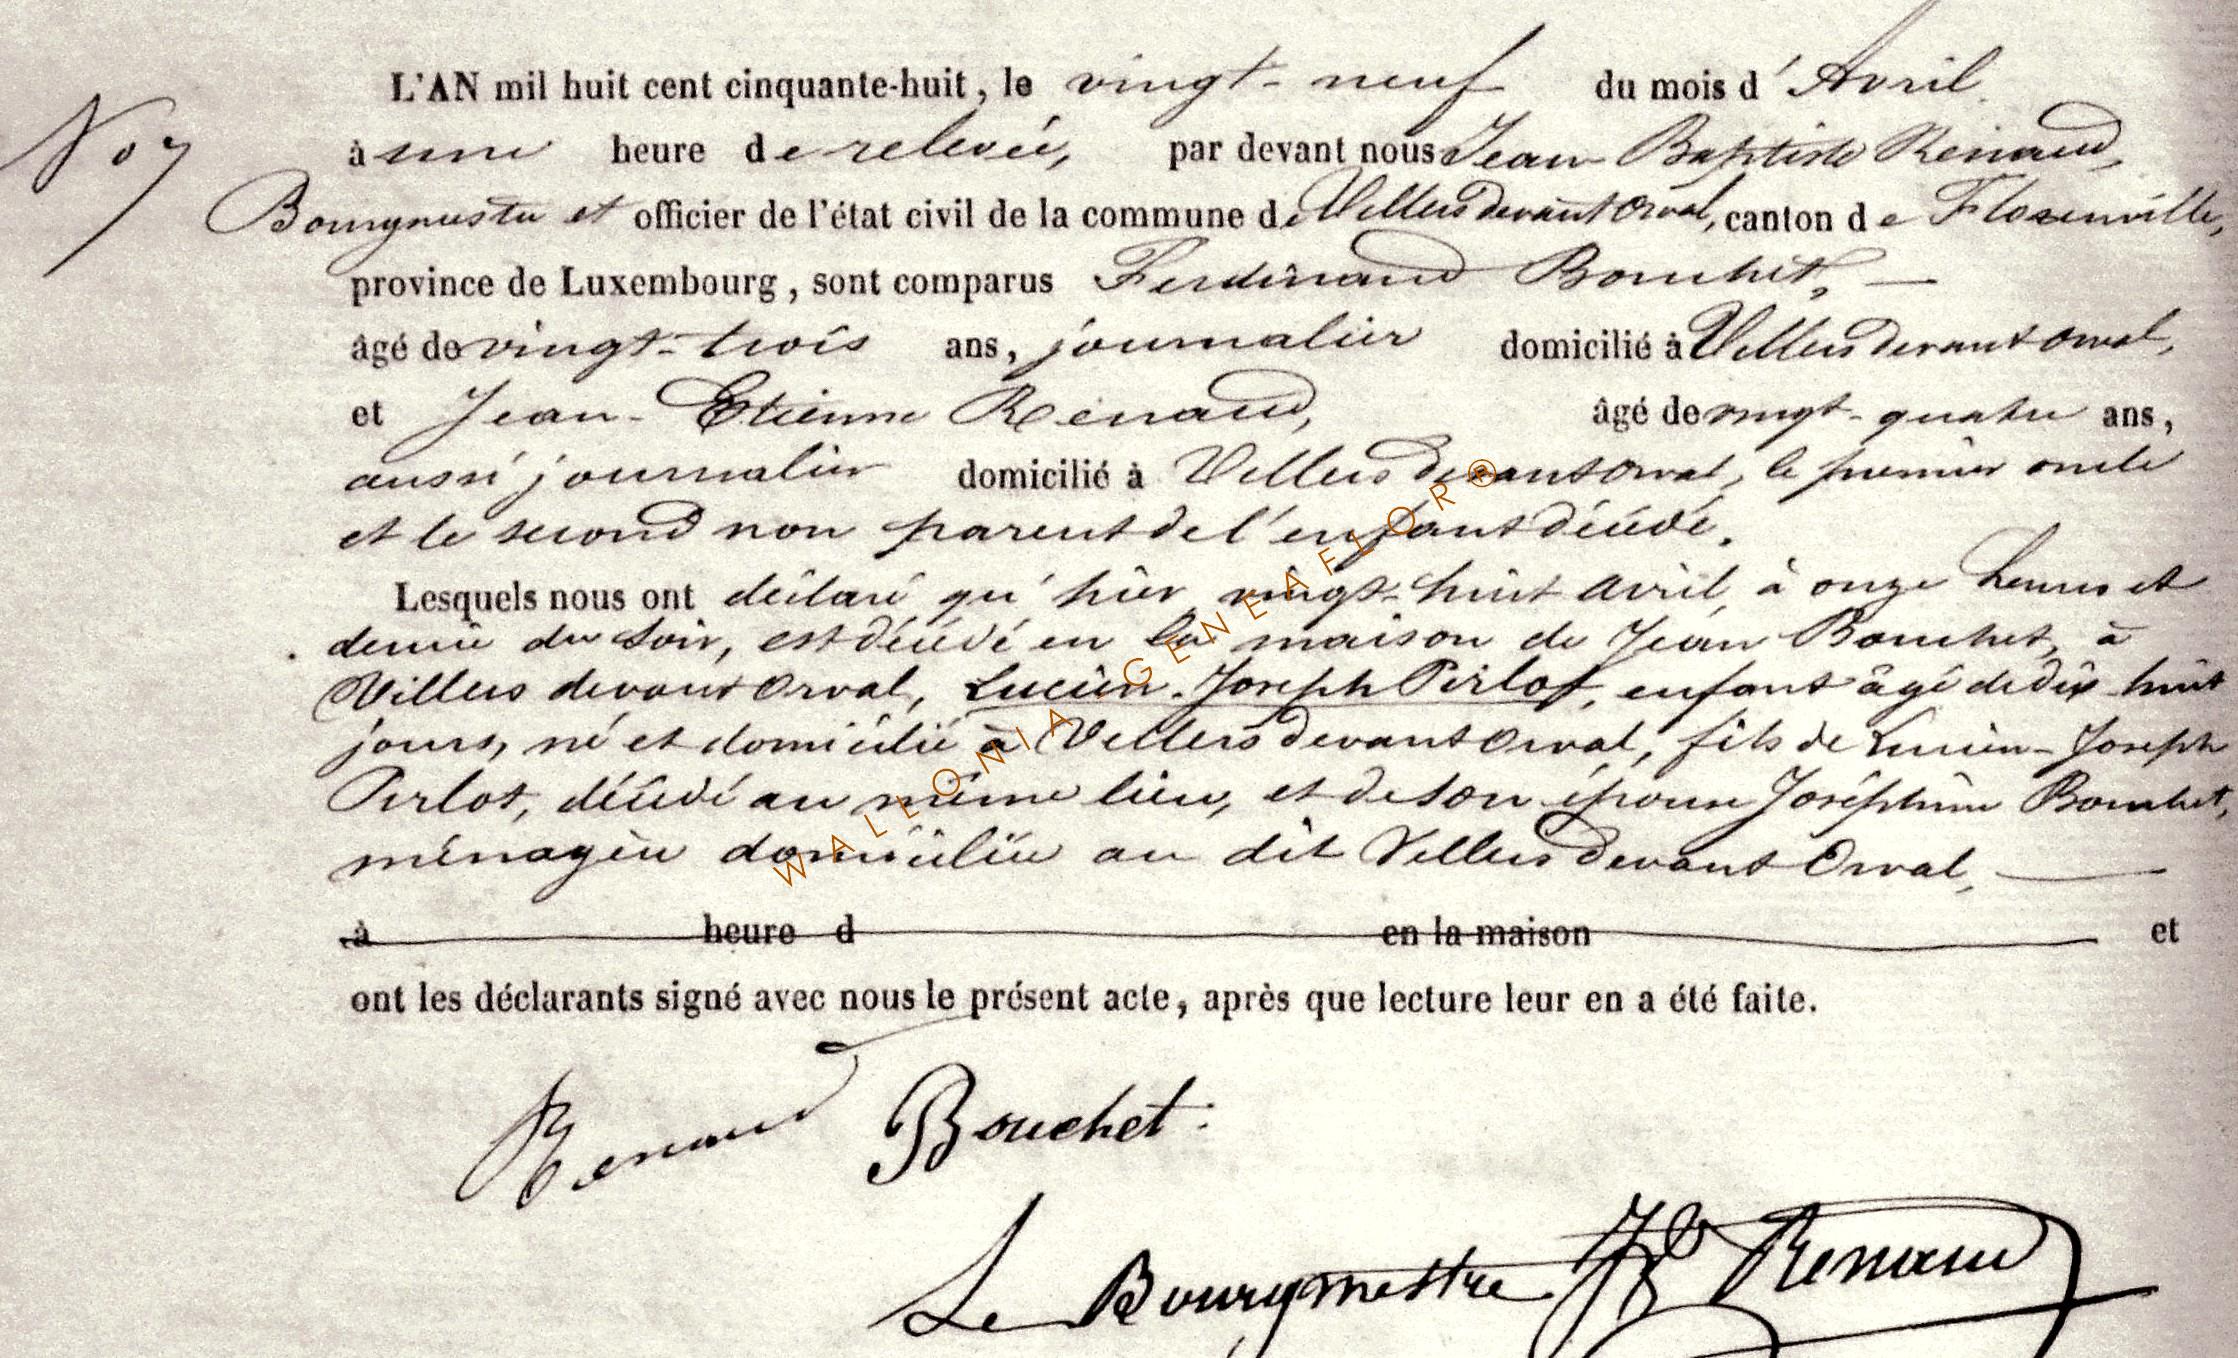 L'AN mil huit cent cinquante-huit, le vingt-neuf du mois d'Avril
No 7 à une heure de relevée, par devant nous Jean Baptiste Renaud,
Bourgmestre et officier de l'état civil de la commune de Villers devant Orval, canton de Florenville,
province de Luxembourg, sont comparus Ferdinand Bouchet, —
âgé de vingt-trois ans, journalier domicilié à Villers devant Orval,
et Jean-Etienne Renaud, âgé de vingt-quatre ans,
aussi journalier domicilié à Villers devant Orval, le premier oncle
et le second non parent de l'enfant décédé.
Lesquels nous ont déclaré qu'hier vingt-huit avril, à onze heures et
demie du soir, est décédé en la maison de Jean Bouchet, à
Villers devant Orval, Lucien-Joseph Pirlot, enfant âgé de dix-huit
jours, né et domicilié à Villers devant Orval, fils de Lucien-Joseph
Pirlot, décédé au même lieu, et de son épouse Joséphine Bouchet,
ménagère domiciliée au dit Villers devant Orval, —
à heure d en la maison et
ont les déclarants signé avec nous le présent acte, après que lecture leur en a été faite.
Renaud Bouchet.
Le Bourgmestre JB Renaud
WALLONIA GENEAFLOR®